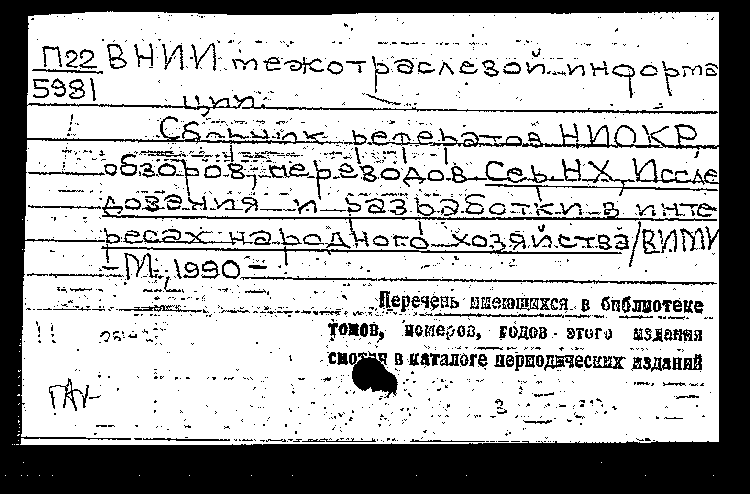 П22 ВНИИ межотраслевой информа
5981
ции.
Сборник рефератов НИОКР,
обзоров, переводов. Сер. НХ, Иссле
дования и разработки в инте
ресах народного хозяйства / ВИМИ
- М., 1990 -
Перечень имеющихся в библиотеке
томов, номеров, годов этого издания
смотри в каталоге периодических изданий